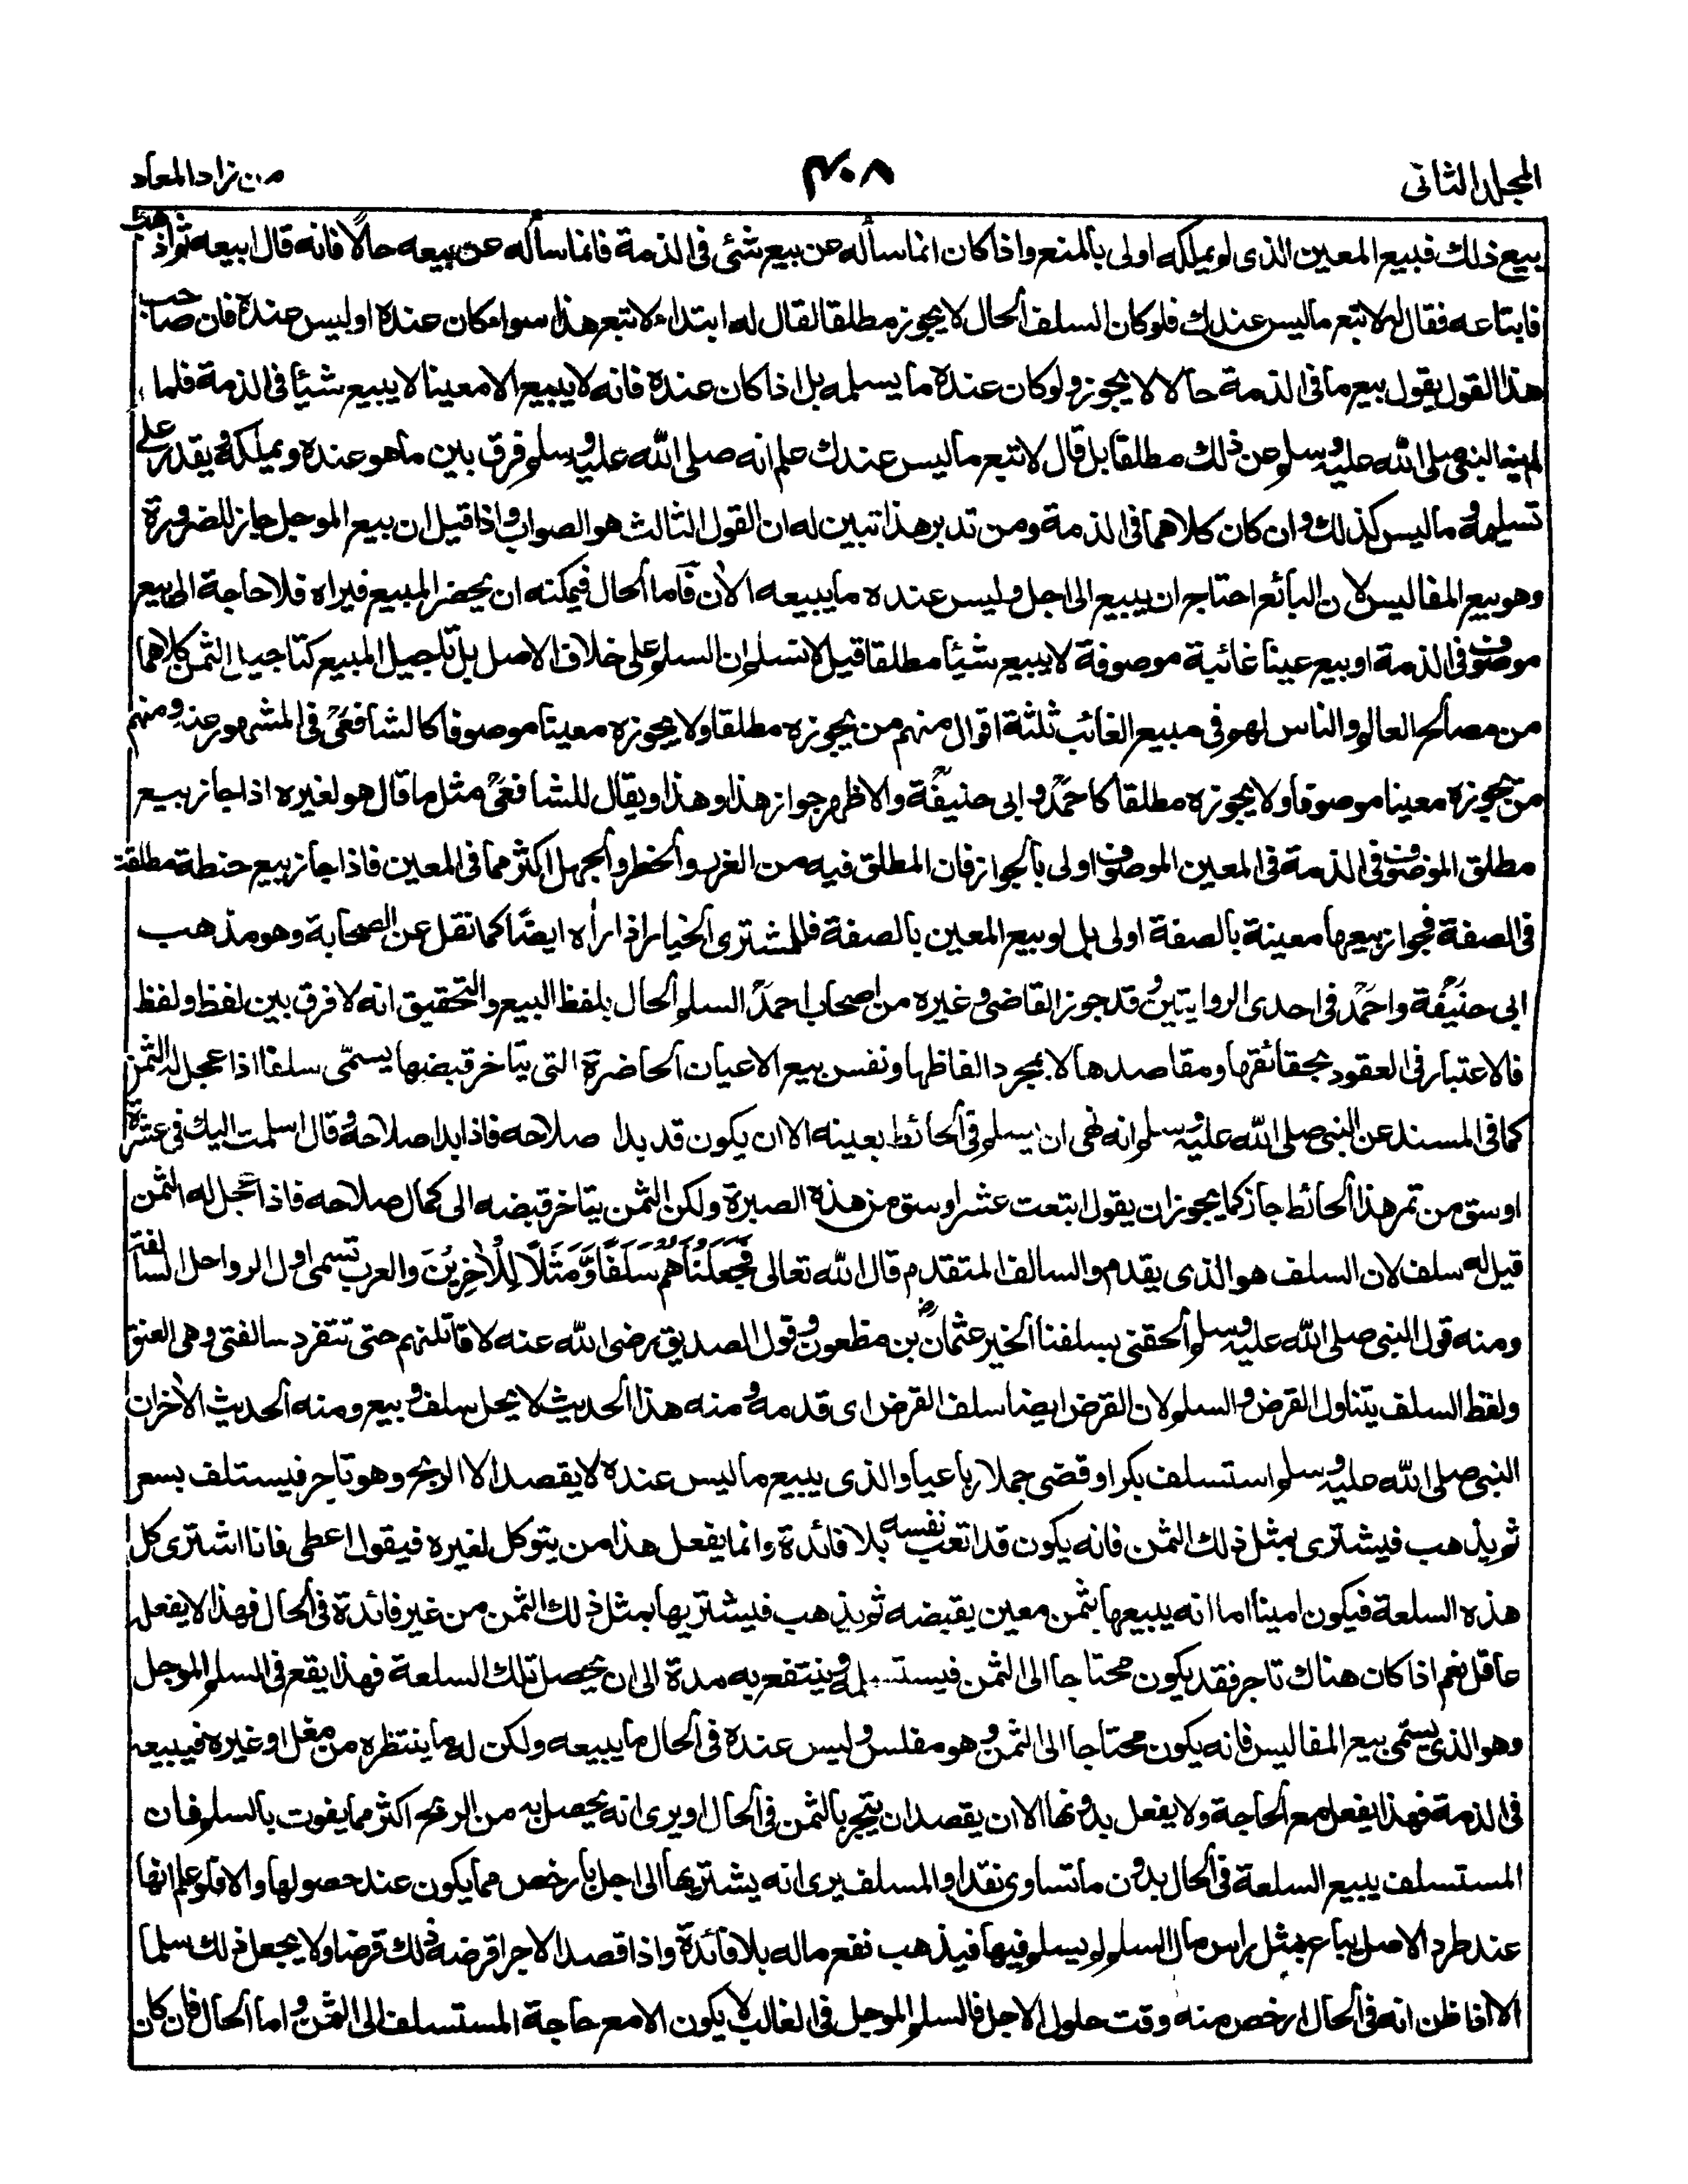 المجلد الثانى
٤٠٨
من زاد المعاد
بيع ذلك فبيع المعين الذى لم يملكه اولى بالمنع واذا كان انما سأله عن بيع شئى فى الذمة فانما سأله عن بيعه حالًا فانه قال ابيعه ثم اذهب
فابتاعه فقال له لا تبع ما ليس عندك فلو كان السلف الحال لا يجوز مطلقا لقال له ابتداء لا تبع هذا سواء كان عنده او ليس عنده فان صاحب
هذا القول يقول بيع ما فى الذمة حالا لا يجوز ولو كان عنده ما يسلمه بل اذا كان عنده فانه لا يبيع الا معينا لا يبيع شيئا فى الذمة فلما
لم ينه النبى صلى الله عليه وسلم عن ذلك مطلقا بل قال لا تبع ما ليس عندك علم انه صلى الله عليه وسلم فرق بين ما هو عنده ويملكه ويقدر على
تسليمه وما ليس كذلك وان كان كلاهما فى الذمة ومن تدبر هذا تبين له ان القول الثالث هو الصواب واذا قيل ان بيع الموجل جايز للضرورة
وهو بيع المفاليس لان البائع احتاج ان يبيع الى اجل وليس عنده ما يبيعه الآن فاما الحال فيمكنه ان يحضر المبيع فيراه فلا حاجة الى بيع
موصوف فى الذمة او بيع عينا غائبة موصوفة لا يبيع شيئا مطلقا قيل لا نسلم ان السلم على خلاف الاصل بل تاجيل المبيع كتاجيل الثمن كلاهما
من مصالح العالم والناس لهم فى مبيع الغائب ثلثة اقوال منهم من يجوزه مطلقا ولا يجوزه معينا موصوفا كالشافعى فى المشهور عنه ومنهم
من يجوزه معينا موصوفا ولا يجوزه مطلقا كاحمد وابى حنيفة والاظهر جواز هذا وهذا ويقال للشافعى مثل ما قال هو لغيره اذا جاز بيع
مطلق الموصوف فى الذمة فى المعين الموصوف اولى بالجواز فان المطلق فيه من الغرر والخطر والجهل اكثر مما فى المعين فاذا جاز بيع حنطة مطلقة
فى الصفة فجواز بيعها معينة بالصفة اولى بل لو بيع المعين بالصفة فللمشترى الخيار اذا رأه ايضًا كما نقل عن الصحابة وهو مذهب
ابى حنيفة واحمد فى احدى الروايتين وقد جوز القاضى وغيره من اصحاب احمد السلم الحال بلفظ البيع والتحقيق انه لا فرق بين لفظ ولفظ
فالاعتبار فى العقود بحقائقها ومقاصدها لا بمجرد الفاظها ونفس بيع الاعيان الحاضرة التى يتاخر قبضها يسمّى سلفا اذا عجل له الثمن
كما فى المسند عن النبى صلى الله عليه وسلم انه نهى ان يسلم فى الحائط بعينه الا ان يكون قد بدا صلاحه فاذا بدا صلاحه وقال اسلمت اليك فى عشرة
اوسق من تمر هذا الحائط جاز كما يجوز ان يقول ابتعت عشر اوسق من هذه الصبرة ولكن الثمن يتاخر قبضه الى كمال صلاحه فاذا عجل له الثمن
قيل له سلف لان السلف هو الذى يقدم والسالف المتقدم قال الله تعالى فَجَعَلْنَاهُمْ سَلَفًا وَّمَثَلًا لِّلْاٰخِرِيْنَ والعرب تسمى اول الرواحل السالفة
ومنه قول النبى صلى الله عليه وسلم الحقنى بسلفنا الخير عثمان رض بن مظعون وقول الصديق رضى الله عنه لاقاتلنهم حتى تنفرد سالفتى وهى العنق
ولفظ السلف يتناول القرض والسلم لان القرض ايضا سلف القرض اى قدمه ومنه هذا الحديث لا يحل سلف وبيع ومنه الحديث الآخر ان
النبى صلى الله عليه وسلم استسلف بكرا وقضى جملا رباعيا والذى يبيع ما ليس عنده لا يقصد الا الربح وهو تاجر فيستلف بسعر
ثم يذهب فيشترى بمثل ذلك الثمن فانه يكون قد اتعب نفسه بلا فائدة وانما يفعل هذا من يتوكل لغيره فيقول اعطى فانا اشترى كل
هذه السلعة فيكون امينا اما انه يبيعها بثمن معين يقبضه ثم يذهب فيشتريها بمثل ذلك الثمن من غير فائدة فى الحال فهذا لا يفعله
عاقل نعم اذا كان هناك تاجر فقد يكون محتاجا الى الثمن وينتفع به مدة الى ان يحصل تلك السلعة فهذا يقع فى السلم الموجل
وهو الذى يسمى بيع المفاليس فانه يكون محتاجا الى الثمن وهو مفلس وليس عنده فى الحال ما يبيعه ولكن له ما ينتظره من مغل او غيره فيبيعه
فى الذمة فهذا يفعل مع الحاجة ولا يفعل بدونها الا ان يقصد ان يتجر بالثمن فى الحال او يرى انه يحصل به من الربح اكثر مما يفوت بالسلم فان
المستسلف يبيع السلعة فى الحال بدون ما تساوى نقدا والمسلف يرى انه يشتريها الى اجل بارخص مما يكون عند حصولها والا فلو علم انها
عند طرد الاصل يباع بمثل راس مال السلم لم يسلم فيها فيذهب نفع ماله بلا فائدة واذا قصد الاجر اقرضه ذلك قرضا ولا يجعل ذلك سلما
الا اذا ظن انه فى الحال ارخص منه وقت حلول الاجل فالسلم الموجل فى الغالب لا يكون الا مع حاجة المستسلف الى الثمن واما الحال فان كان